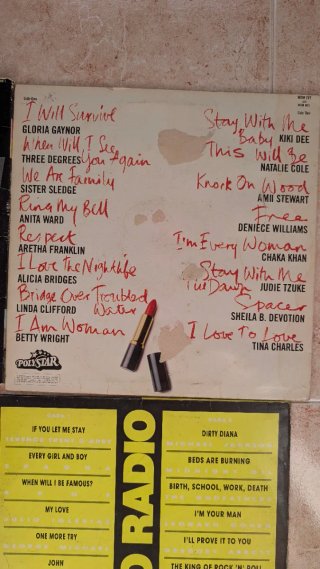 Side One
I Will Survive
GLORIA GAYNOR
When Will I See
You Again
THREE DEGREES
We Are Family
SISTER SLEDGE
Ring My Bell
ANITA WARD
Respect
ARETHA FRANKLIN
I Love The Nightlife
ALICIA BRIDGES
Bridge Over Troubled
Water
LINDA CLIFFORD
I Am Woman
BETTY WRIGHT
POLYSTAR
Side Two
Stay With Me
Baby
KIKI DEE
This Will Be
NATALIE COLE
Knock On Wood
AMII STEWART
Free
DENIECE WILLIAMS
I'm Every Woman
CHAKA KHAN
Stay With Me
Till Dawn
JUDIE TZUKE
Spacer
SHEILA B. DEVOTION
I Love To Love
TINA CHARLES
IF YOU LET ME STAY
EVERY GIRL AND BOY
WHEN WILL I BE FAMOUS?
MY LOVE
ONE MORE TRY
JOHN
O RADIO
DIRTY DIANA
BEDS ARE BURNING
BIRTH, SCHOOL, WORK, DEATH
I'M YOUR MAN
I'LL PROVE IT TO YOU
THE KING OF ROCK 'N' ROLL